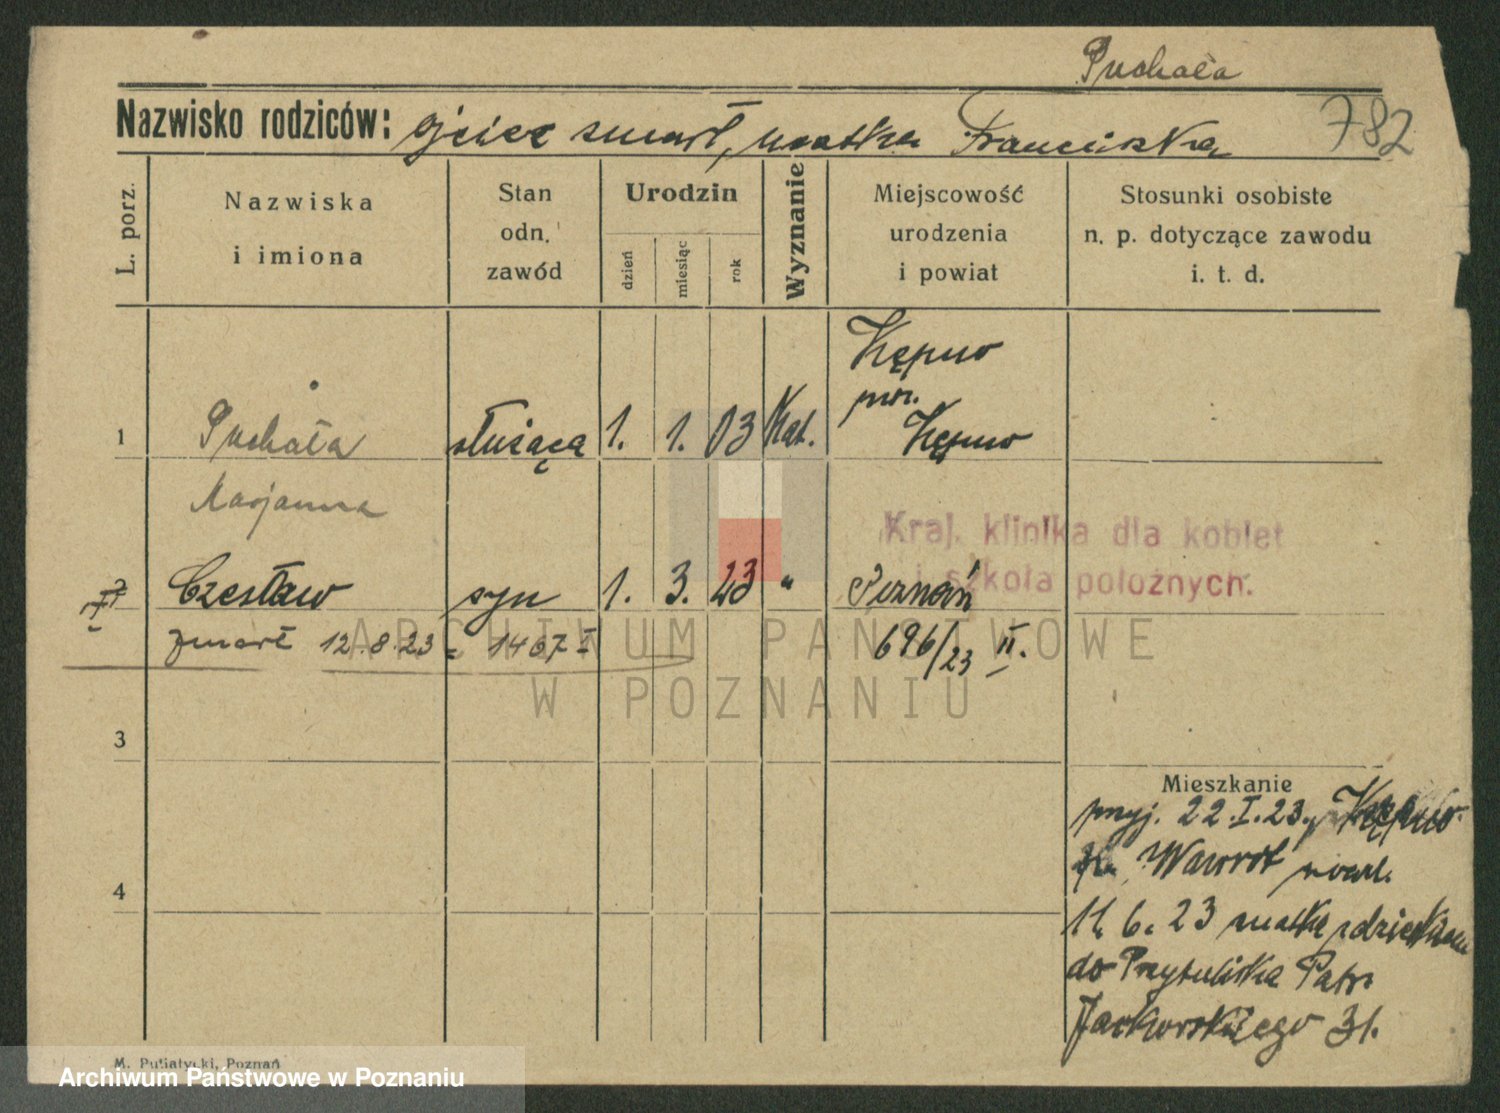 Puchała
Nazwisko rodziców: ojciec zmarł, matka Franciszka
782
L. porz.
Nazwiska
i imiona
Stan
odn.
zawód
Urodzin
dzień
miesiąc
rok
Wyznanie
Miejscowość
urodzenia
i powiat
Stosunki osobiste
n. p. dotyczące zawodu
i. t. d.
Kępno
pow.
1 Puchała służąca 1. 1. 03 Kat. Kępno
Marjanna
Kraj. klinika dla kobiet
i szkoła położnych.
2 Czesław syn 1. 3. 23 " Poznań
zmarł 12.8.23 = 1467 I 696/23 II.
ARCHIWUM PAŃSTWOWE
W POZNANIU
3
Mieszkanie
przyj. 22.I.23. Kępno
Wawrót
4
11. 6. 23 matka z dzieckiem
do Przytuliska Patr.
Jackowskiego 31.
M. Putiatycki, Poznań
Archiwum Państwowe w Poznaniu